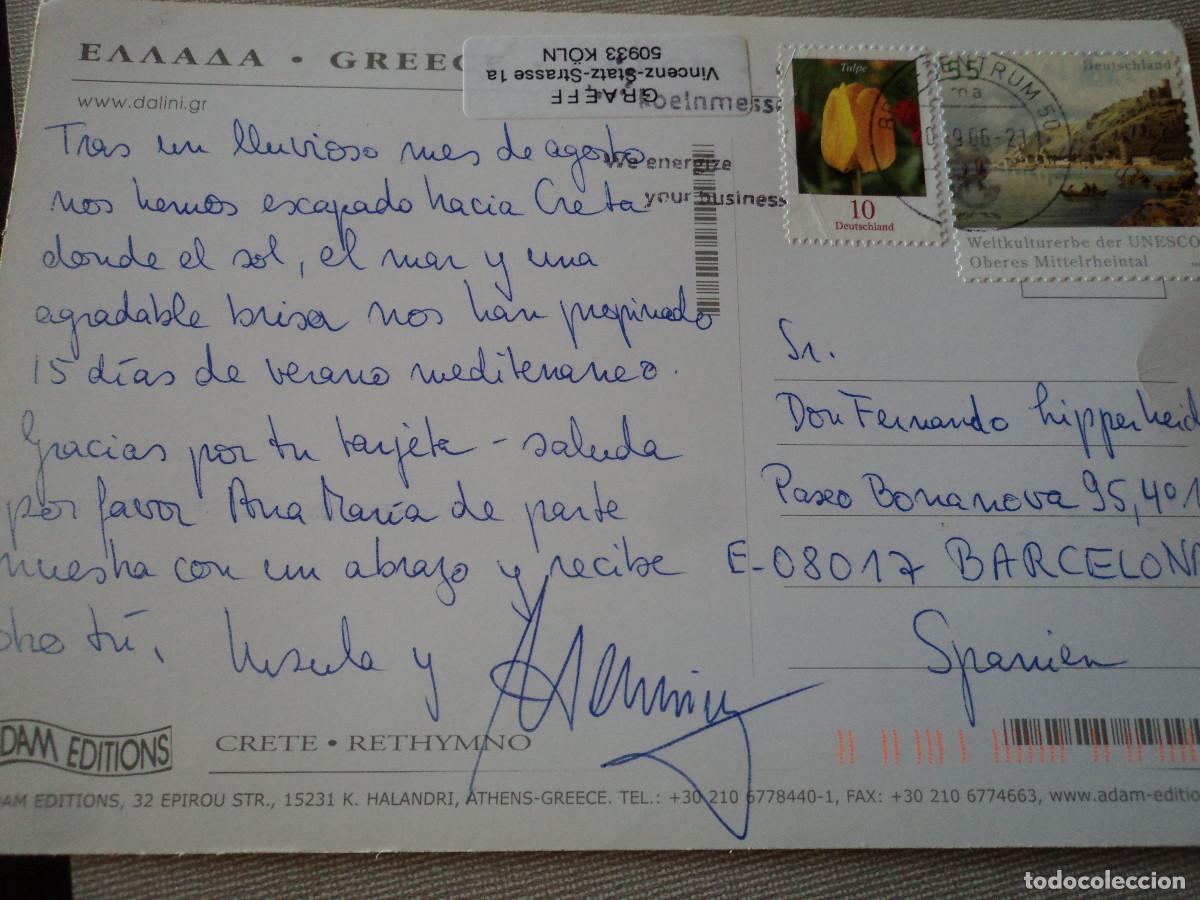 ΕΛΛΑΔΑ • GREEC
www.dalini.gr
GRAEFF
Vincenz-Statz-Strasse 1a
50933 KÖLN
koelnmesse
We energize
your business
Tulpe
10
Deutschland
55
Deutschland
Weltkulturerbe der UNESCO
Oberes Mittelrheintal
ZENTRUM 50
Tras un lluvioso mes de agosto
nos hemos escapado hacia Creta
donde el sol, el mar y una
agradable brisa nos han propinado
15 días de verano mediterraneo.
Gracias por tu tarjeta – saluda
por favor Ana María de parte
nuestra con un abrazo y recibe
otro tú, Ursula y
Sr.
Don Fernando Lipperheid
Paseo Bonanova 95, 4º 1
E-08017 BARCELONA
Spanien
DAM EDITIONS
CRETE • RETHYMNO
DAM EDITIONS, 32 EPIROU STR., 15231 K. HALANDRI, ATHENS-GREECE. TEL.: +30 210 6778440-1, FAX: +30 210 6774663, www.adam-editio
todocoleccion